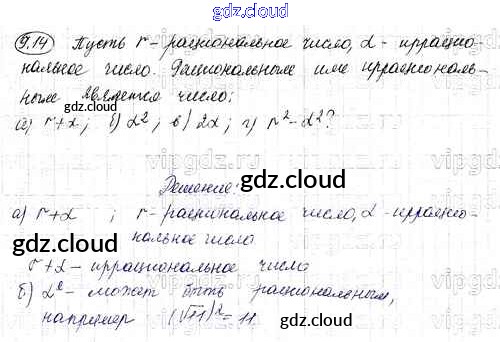 gdz.cloud
9.14 Пусть r - рациональное число, α - иррацио-
нальное число. Рациональным или иррациональ-
ным является число:
а) r+α; б) α²; в) 2α; г) r²-α²?
Решение:
gdz.cloud
а) r+α ; r - рациональное число, α - иррацио-
gdz.cloud
нальное число
r+α - иррациональное число
б) α² - может быть рациональным,
например (√11)² = 11
gdz.cloud